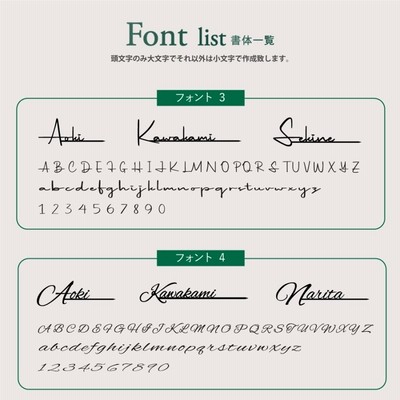 Font list 書体一覧
頭文字のみ大文字でそれ以外は小文字で作成致します。
フォント 3
Aoki Kawakami Sekine
A B C D E F G H I J K L M N O P Q R S T U V W X Y Z
a b c d e f g h i j k l m n o p q r s t u v w x y z
1 2 3 4 5 6 7 8 9 0
フォント 4
Aoki Kawakami Narita
A B C D E F G H I J K L M N O P Q R S T U V W X Y Z
a b c d e f g h i j k l m n o p q r s t u v w x y z
1 2 3 4 5 6 7 8 9 0